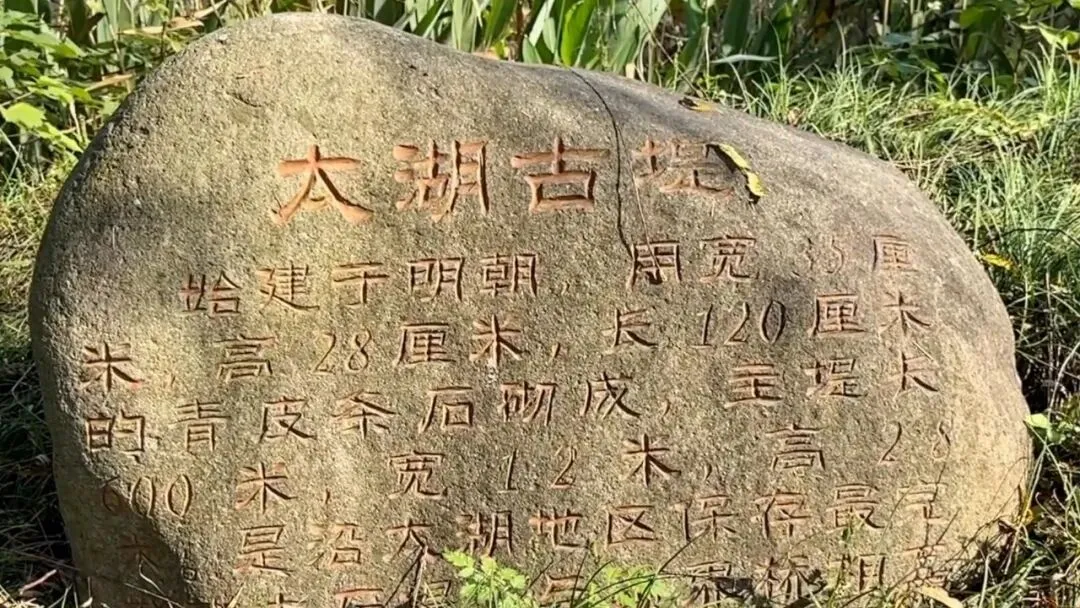 太湖古堤
始建于明朝,用宽35厘
米,高28厘米,长120厘米
的青皮条石砌成,主堤长
600米,宽12米,高28
米是沿太湖地区保存最早